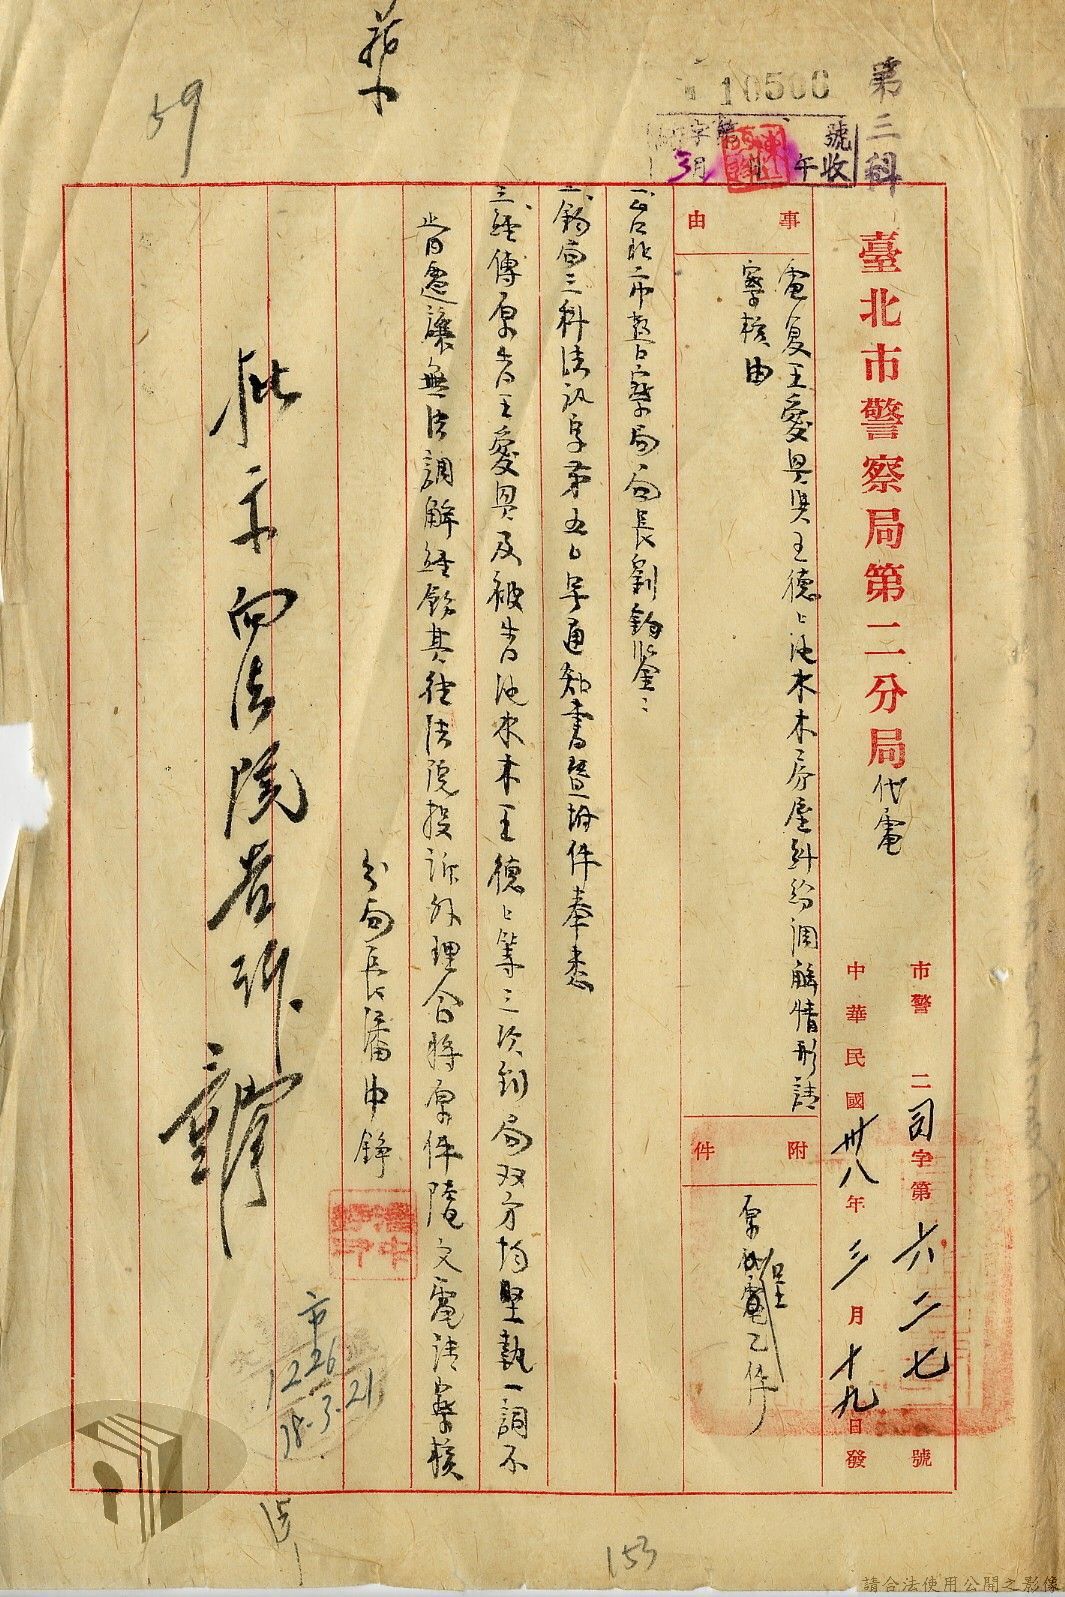 第三科
10500
字第 號
3月 午收
蔡
59
臺北市警察局第二分局代電
市警二司字第六二七號
中華民國卅八年三月十九日發
事由
電复王愛與王德池木木房屋糾紛調解情形請
察核由
附件
原 呈 乙件
一、台北市警察局局長劉鈞鑒：
二、鈞局三科法訊字第五 号通知書暨坿件奉悉
三、經傳原告王愛 及被告池木木王德 等三次到局双方均坚執一詞不
肯退讓無法調解經飭其往法院投訴外理合將原件隨文電請察核
分局長潘中錚
批示向法院告訴
市
1226
38.3.21
153
請合法使用公開之影像